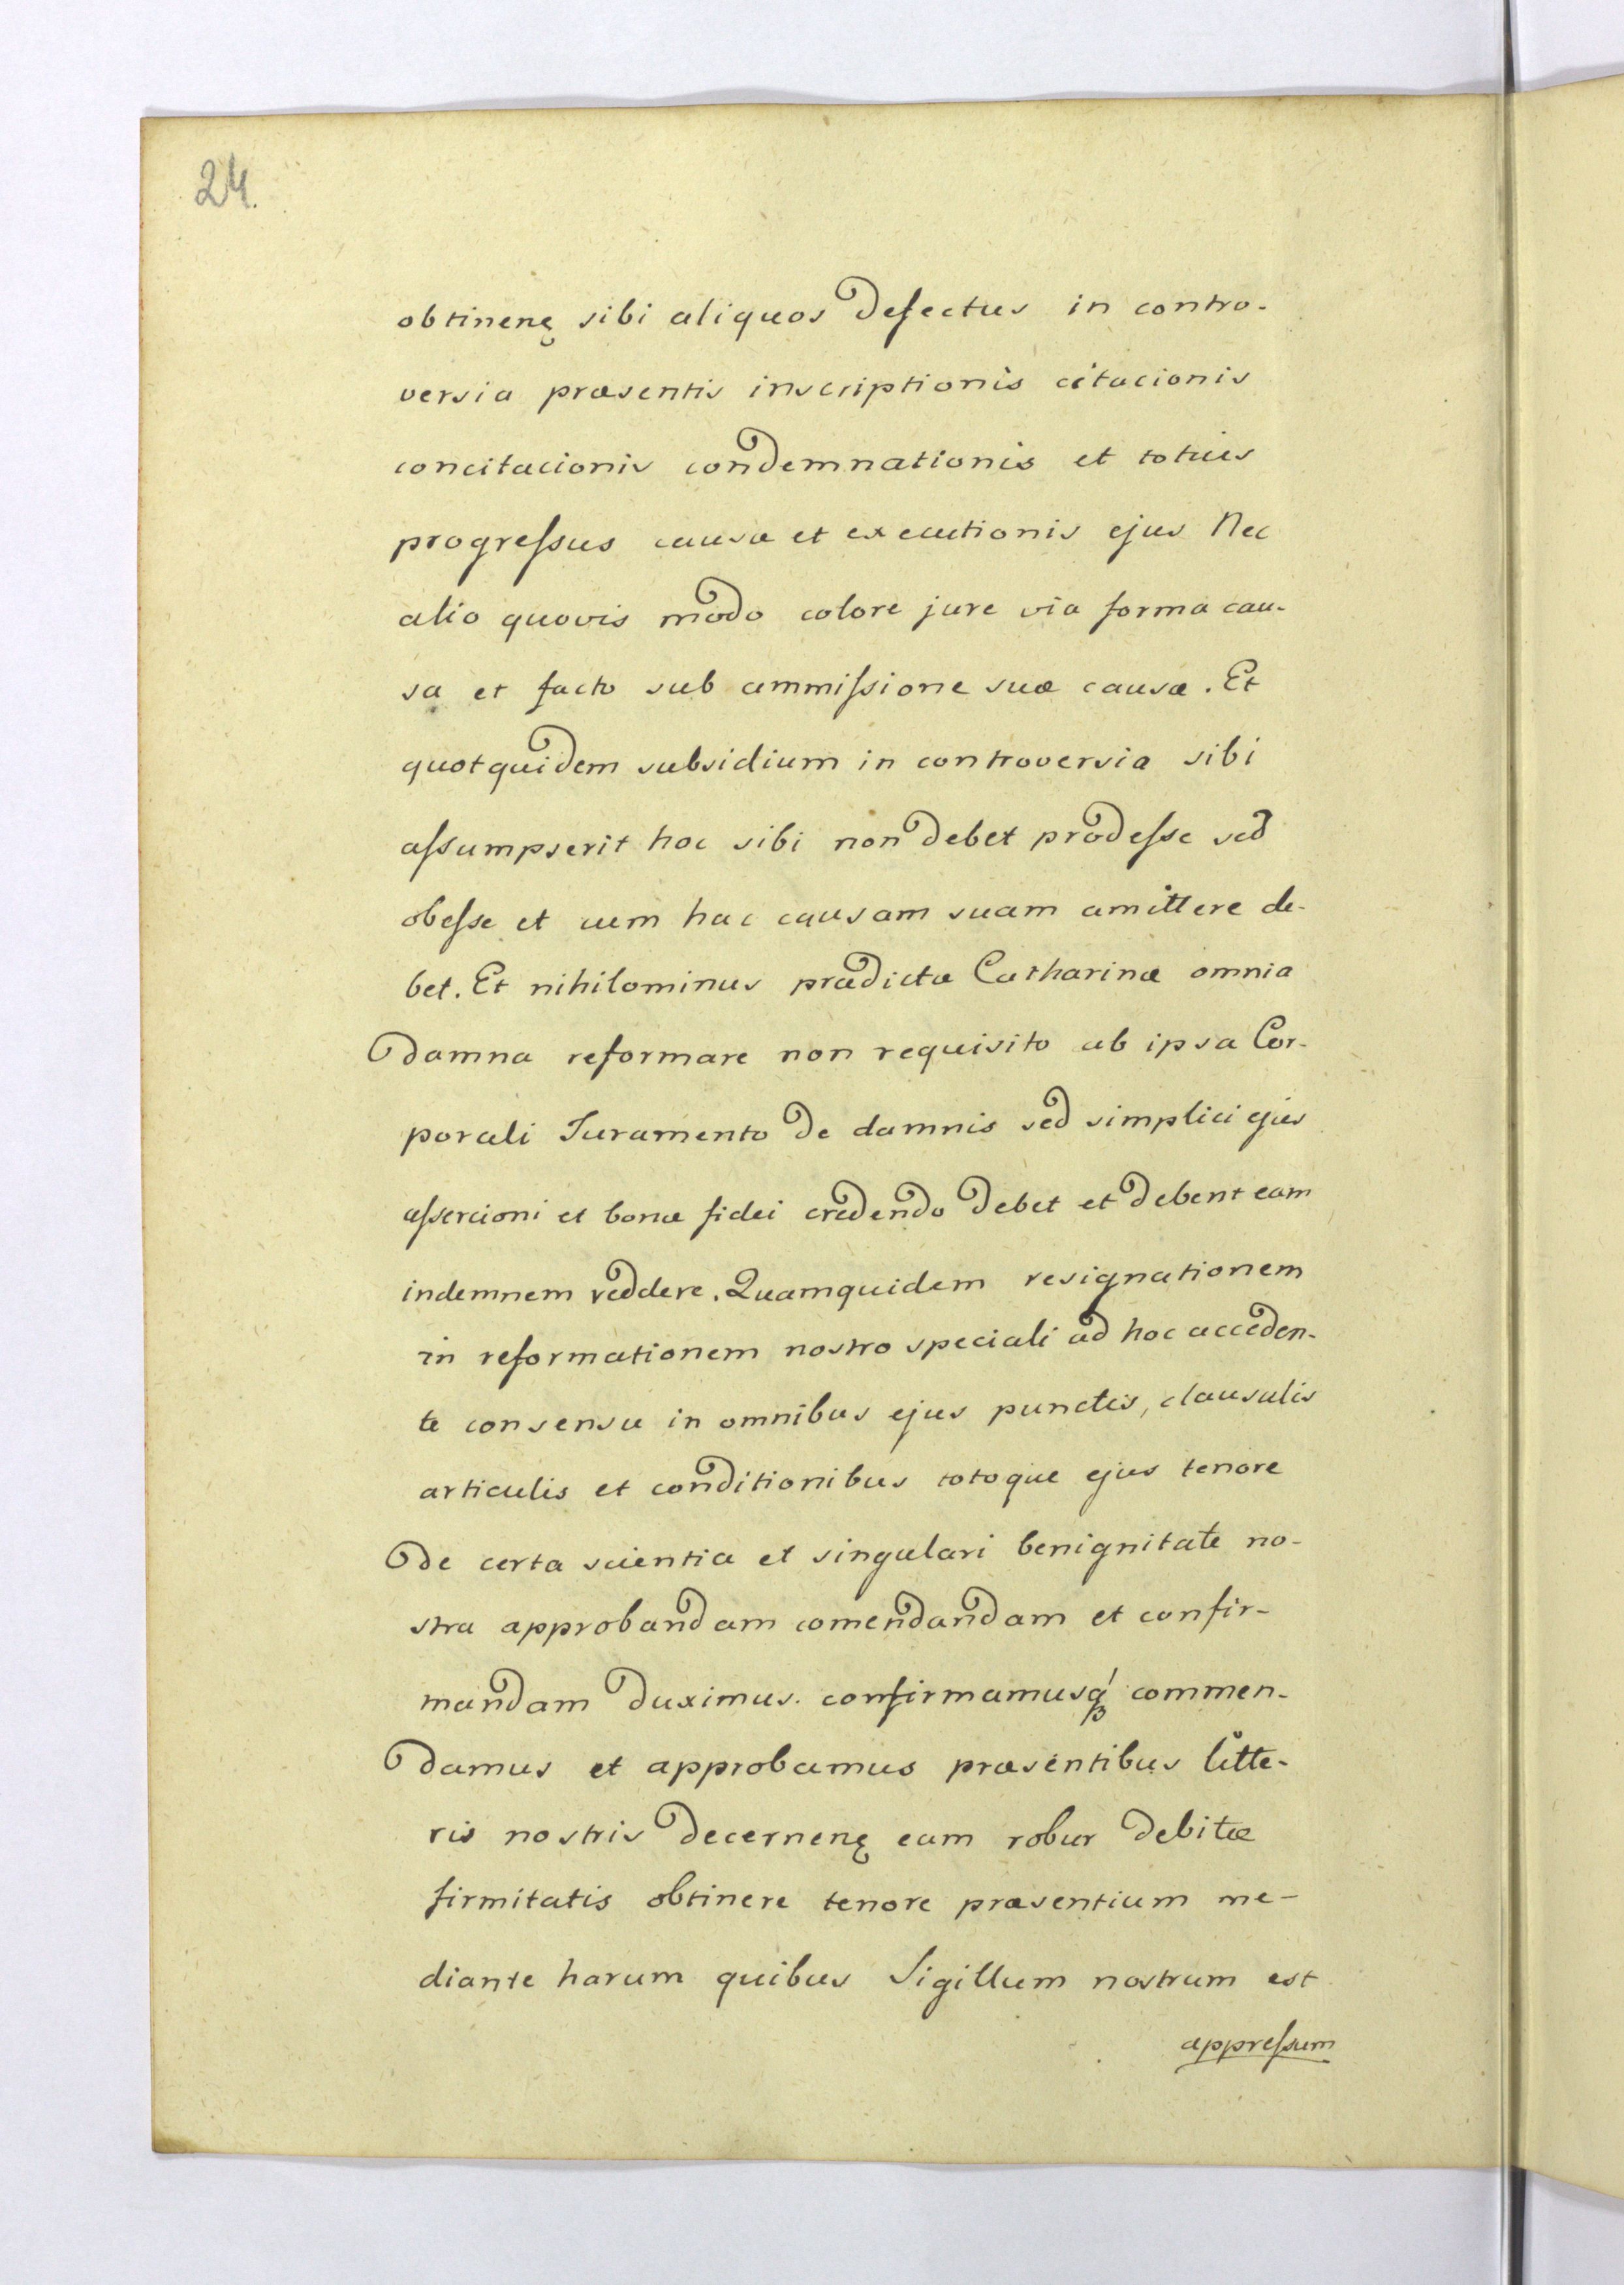 24.
obtinenę sibi aliquos defectus in contro-
versia præsentis inscriptionis citacionis
concitacionis condemnationis et totius
progreſsus causæ et executionis ejus Nec
alio quovis modo colore jure via forma cau-
sa et facto sub ammiſsione suæ causæ. Et
quotquidem subsidium in controversia sibi
aſsumpserit hoc sibi non debet prodeſse sed
obeſse et cum hac causam suam amittere de-
bet. Et nihilominus prædictæ Catharinæ omnia
damna reformare non requisito ab ipsa Cor-
porali Juramento de damnis sed simplici ejus
aſsercioni et bonæ fidei credendo debet et debent eam
indemnem reddere. Quamquidem resignationem
in reformationem nostro speciali ad hoc acceden-
te consensu in omnibus ejus punctis, clausulis
articulis et conditionibus totoque ejus tenore
de certa scientia et singulari benignitate no-
stra approbandam comendandam et confir-
mandam duximus. confirmamusq́ commen-
damus et approbamus præsentibus litte-
ris nostris decernenę eam robur debitæ
firmitatis obtinere tenore præsentium me-
diante harum quibus Sigillum nostrum est
appreſsum